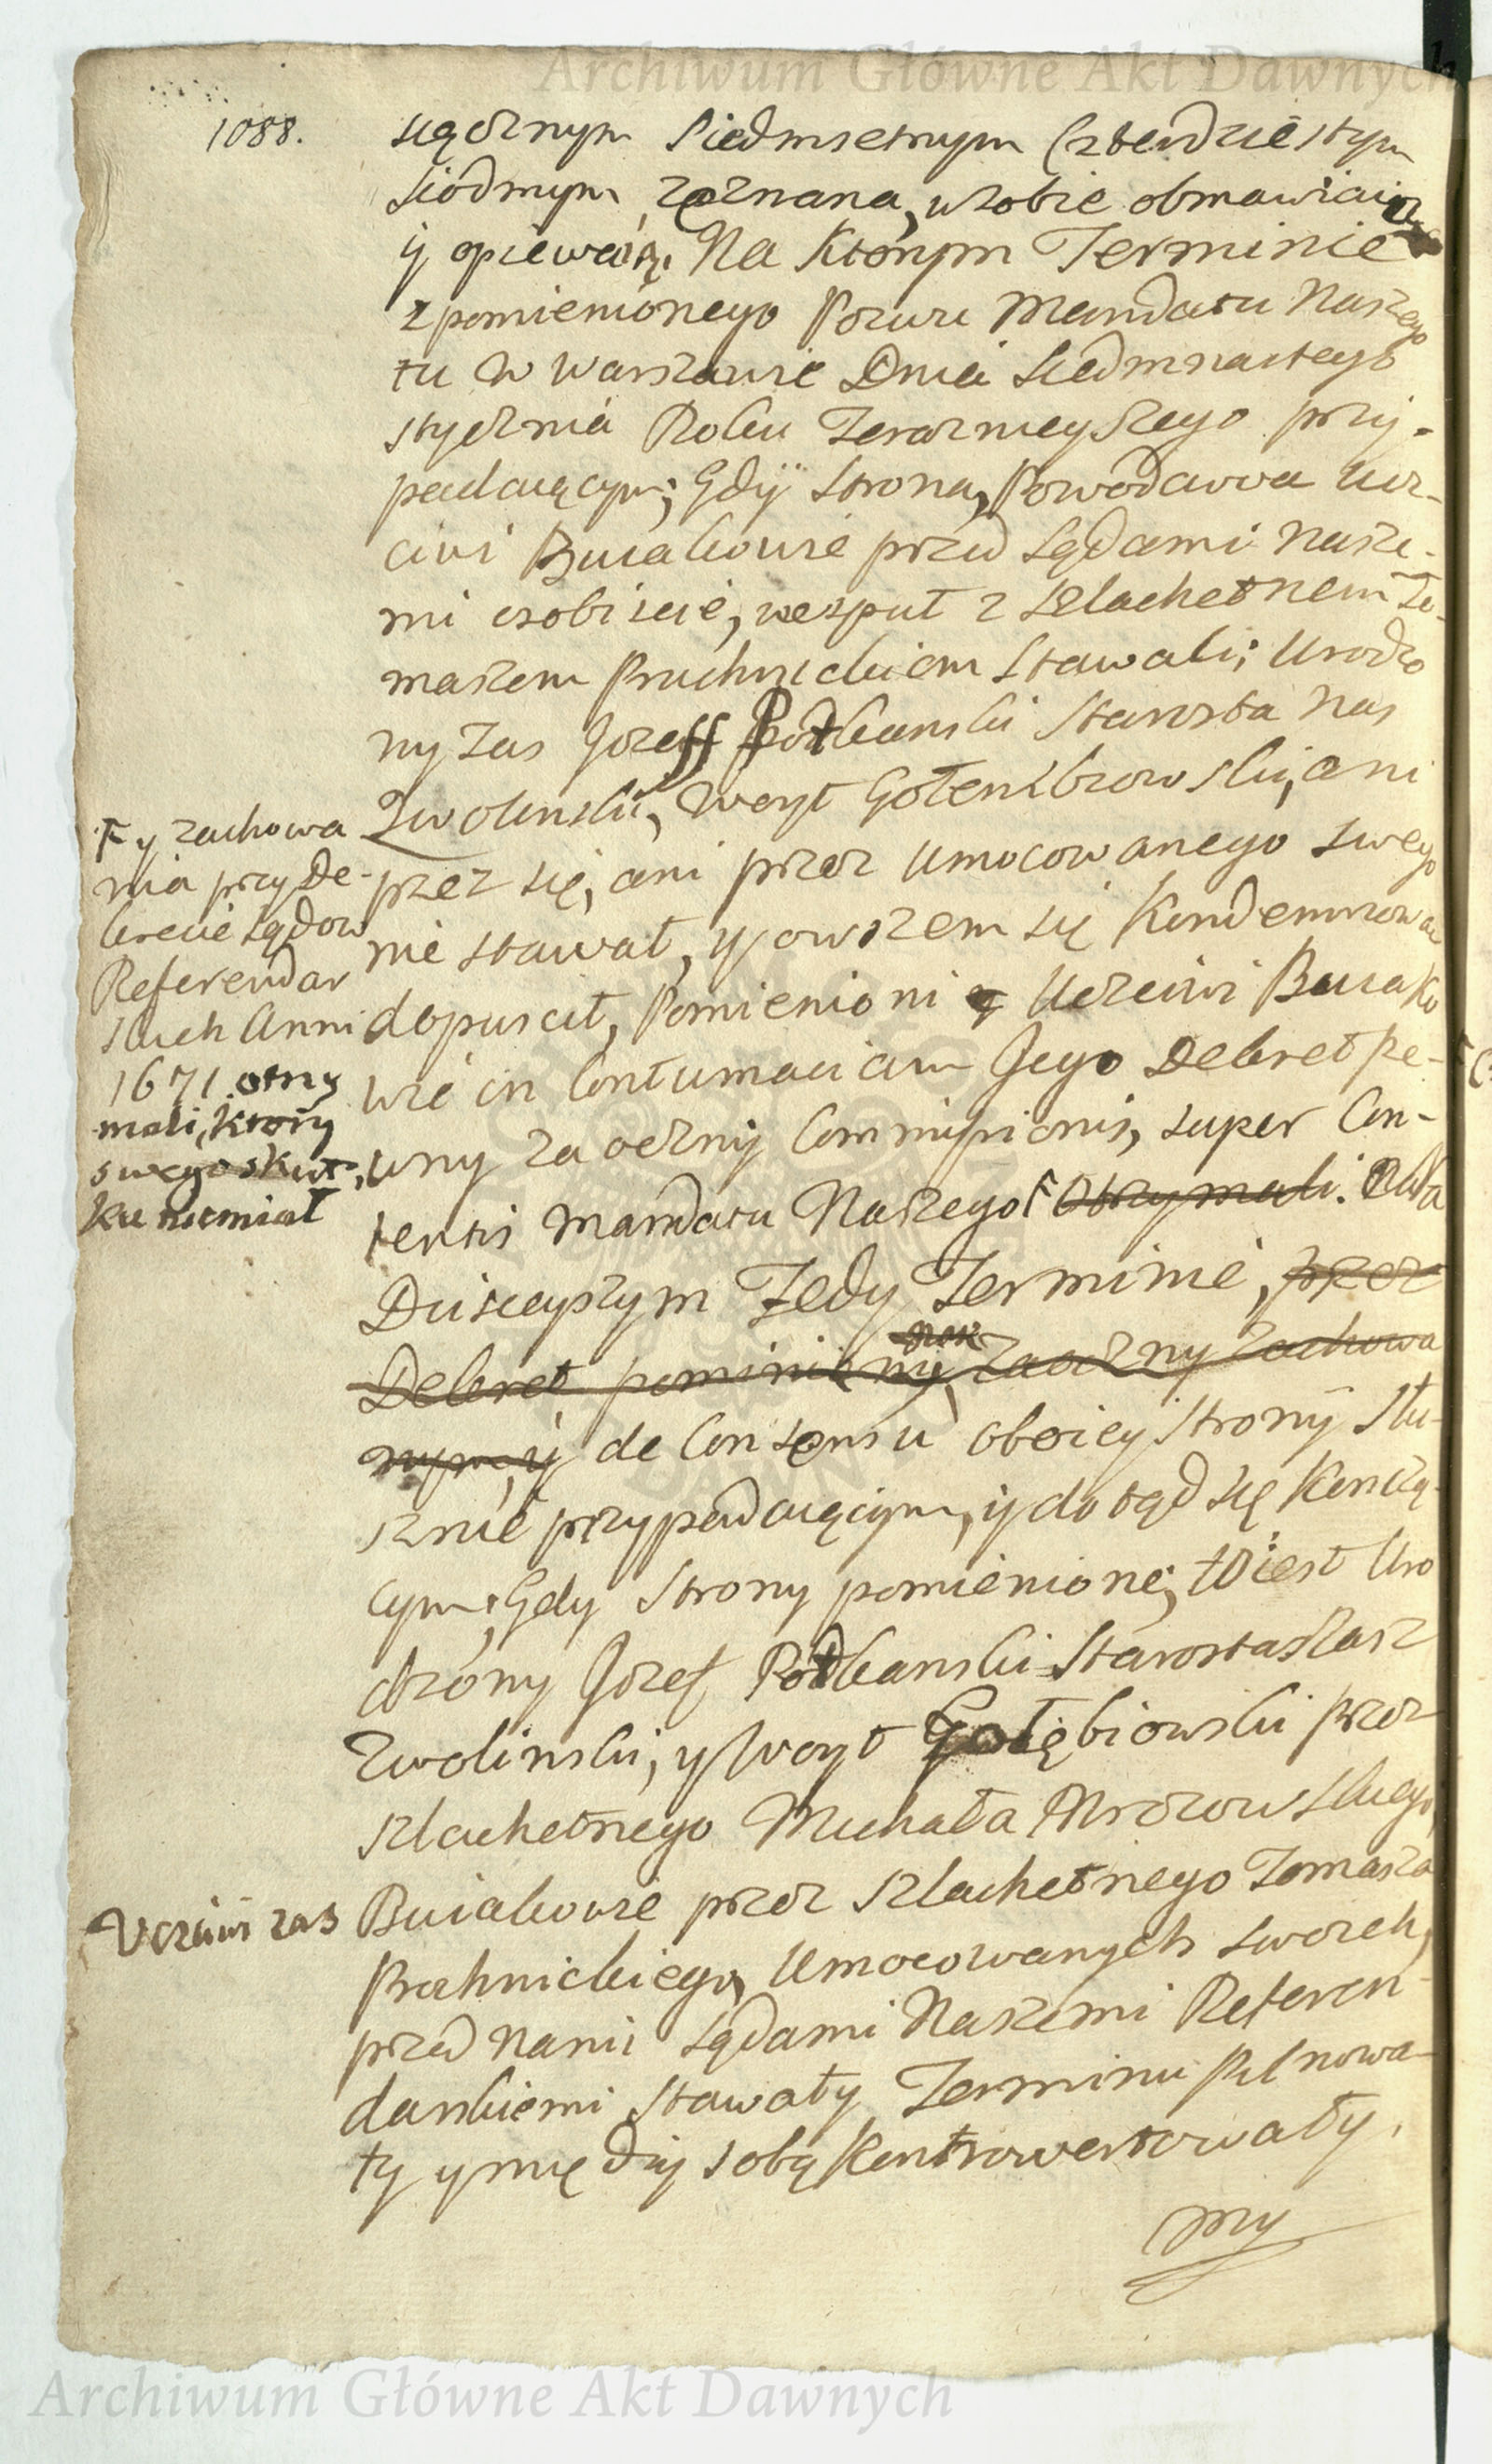 Archiwum Główne Akt Dawnych
1088.
siącznym Siedmsetnym Czterdziestym
siodmym zeznana, w sobie obmawiaiącą
y opiewaiącą. Na Ktorym Terminie
z pomienionego Pozwu Mandatu Naszego
tu w Warszawie Dnia siedmnastego
stycznia Roku Teraznieyszego przy-
padaiącym; Gdÿ strona Powodowa Ucz-
ciwi Buiakowie przed sądami Nasze-
mi osobiscie, wespuł z szlachetnem To-
maszem Pruchnickiem stawali; Urodzo
ny zas Jozeff Podkanski Starosta Nas
Zwolinski, Woyt Gołembiowski, ani
przez się, ani przez Umocowanego swego
nie stawał, y owszem się Kondemnowac
dopuscił, Pomienioni Uczciwi Buiako
wie in Contumaciam Jego Dekret pe-
wny zaoczny Commissionis, super Con-
tentis Mandatu Naszego Ғ otrzymali. Na
Dzisieyszym Tedy Terminie, przez
Dekret pomieniony zaoczny zachowa
nym, y de Consensu oboiey strony słu-
sznie przypadaiącym, y dotąd się Konczą-
cym; Gdy strony pomienione, to iest Uro
dzony Jozef Podkanski Starosta
Zwolinski, y Woyt Gołębiowski przez
szlachetnego Michała Mrozowskiego,
Buiakowie przez szlachetnego Tomasza
Prochnickiego, Umocowanych swoich,
przed Nami sądami Naszemi Referen-
darskiemi stawały Terminu Pilnowa-
ły y między sobą Kontrowertowały.
My
Ғ y zachowa
nia przy De-
krecie sądow
Referendar
skich Anni
1671 otrzy
mali, ktory
swego skut-
ku niemiał
Uczciwi zas
Archiwum Główne Akt Dawnych